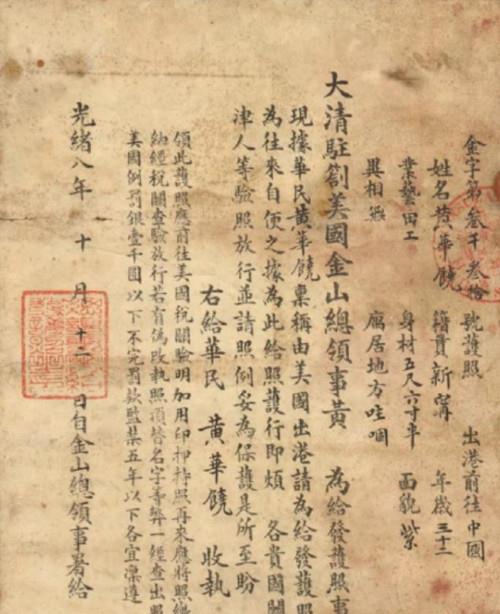 金字第叁千叁拾 號護照 出港前往中國
姓名黃華饒 籍貫新寧 年歲三十二
業藝田工 身材五尺六寸半 面貌紫
異相無 寓居地方哇崓
大清駐劄美國金山總領事黃 為給發護照事
現據華民黃華饒稟稱由美國出港請為給發護照
為往來自便之據為此給照護行即煩 各貴國關
津人等驗照放行並請照例妥為保護是所至盼
右給華民 黃華饒 收執
領此護照應前往美國稅關驗明加用印押持照再來應將照繳
納經稅關查驗放行若有偽改執照頂替名字等弊一經查出照
美國例罰銀壹千圓以下不完罰款監禁五年以下各宜凜遵
光緒八年 十 月 十一 日自金山總領事署給